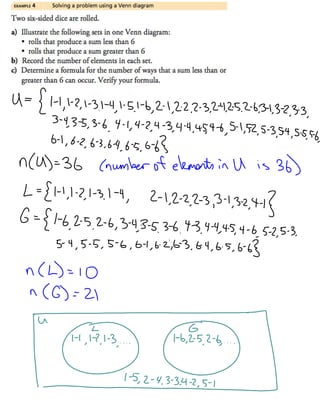 EXAMPLE 4 Solving a problem using a Venn diagram
Two six-sided dice are rolled.
a) Illustrate the following sets in one Venn diagram:
• rolls that produce a sum less than 6
• rolls that produce a sum greater than 6
b) Record the number of elements in each set.
c) Determine a formula for the number of ways that a sum less than or
greater than 6 can occur. Verify your formula.
U = { 1-1, 1-2, 1-3 1-4, 1-5, 1-6, 2-1, 2-2, 2-3, 2-4, 2-5, 2-6, 3-1, 3-2, 3-3,
3-4, 3-5, 3-6, 4-1, 4-2, 4-3, 4-4, 4-5, 4-6, 5-1, 5-2, 5-3, 5-4, 5-5, 5-6,
6-1, 6-2, 6-3, 6-4, 6-5, 6-6}
n(U)=36 (number of elements in U is 36)
L = {1-1, 1-2, 1-3, 1-4, 2-1, 2-2, 2-3, 3-1, 3-2, 4-1}
G = {1-6, 2-5, 2-6, 3-4, 3-5, 3-6, 4-3, 4-4, 4-5, 4-6, 5-2, 5-3,
5-4, 5-5, 5-6, 6-1, 6-2, 6-3, 6-4, 6-5, 6-6}
n(L) = 10
n(G) = 21
U
L G
1-1, 1-2, 1-3, ... 1-6, 2-5, 2-6, ...
1-5, 2-4, 3-3, 4-2, 5-1